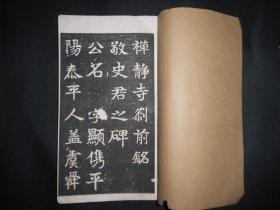 禪静寺刹前銘
敬史君之碑
公名　字顯儁平
陽泰平人蓋虞舜